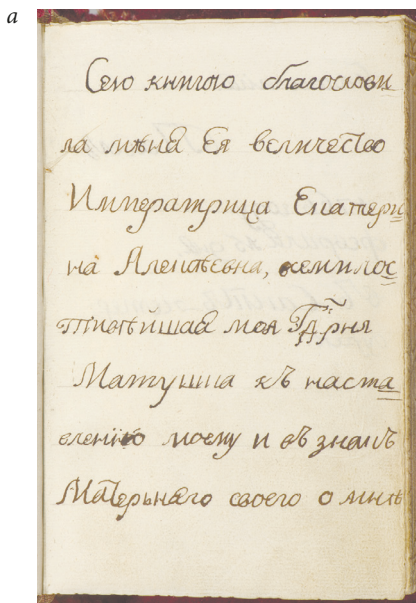 a
Сею книгою благослови
ла мѣня Ея величество
Императрица Екатери
на Алеѯѣевна, всемилос
тивѣйшая моя Гдⷭ҇рня
Матушка къ наста
влению моему и въ знакъ
Матерьняго своего о мнѣ